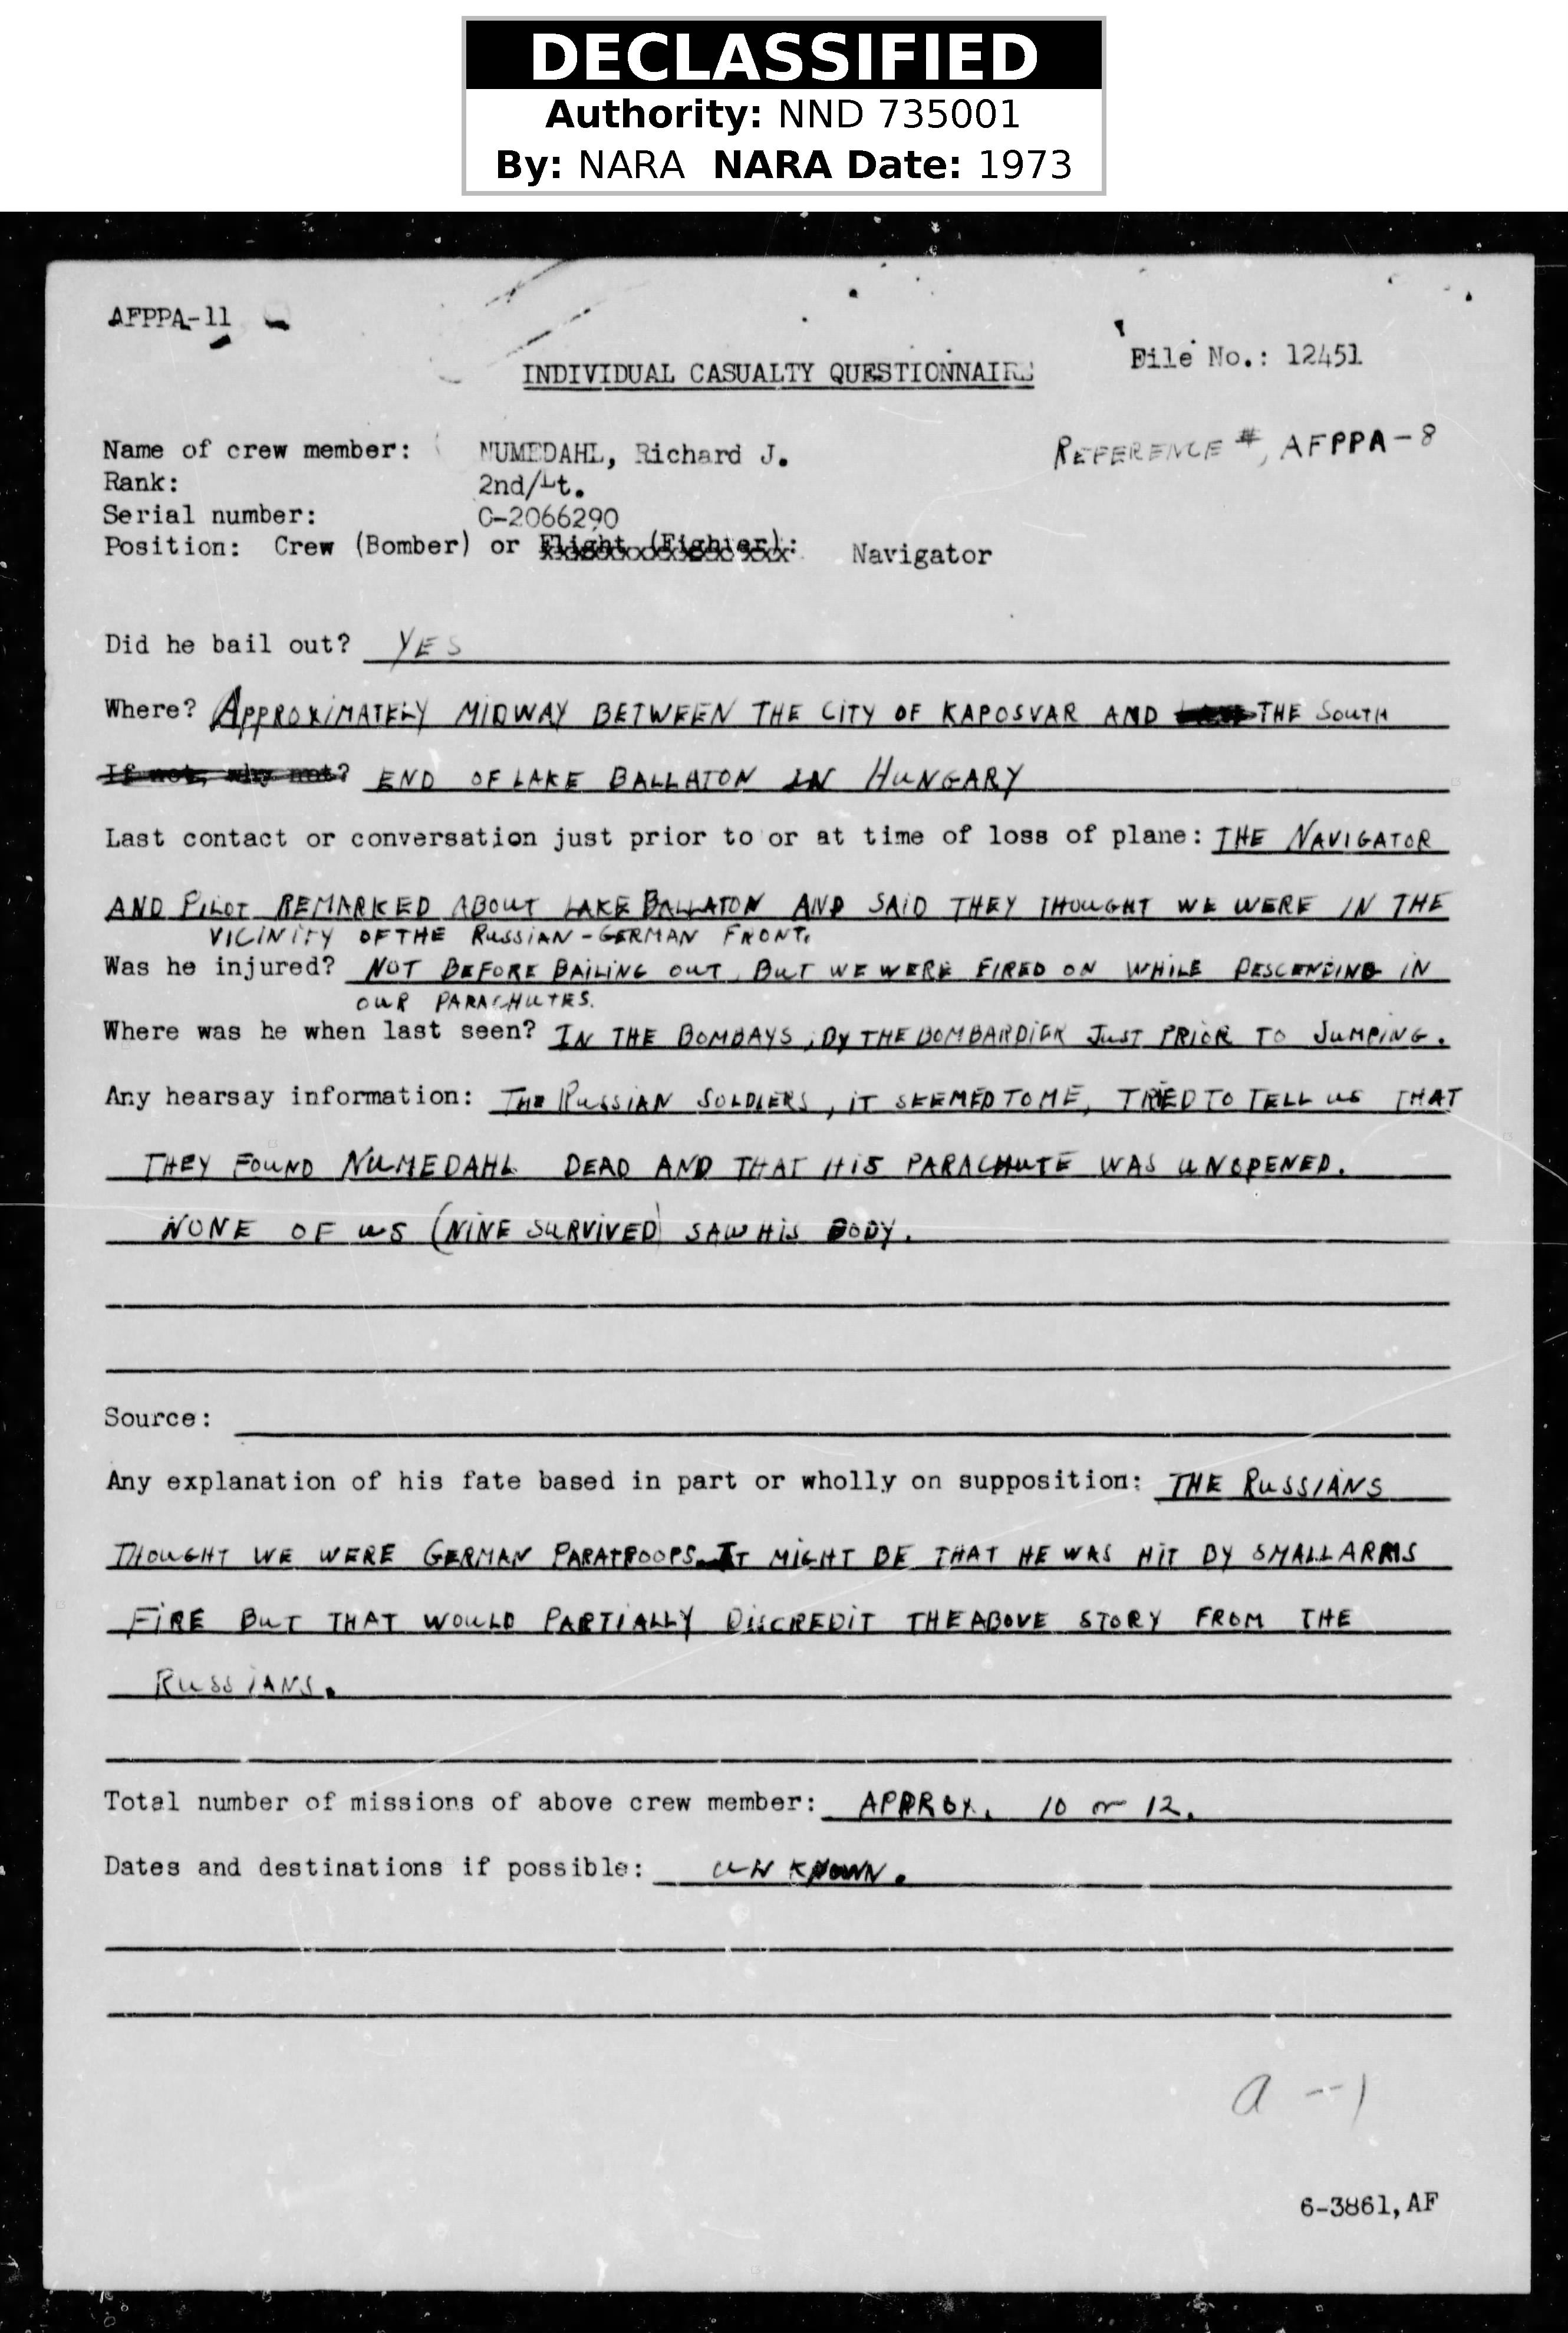 DECLASSIFIED
Authority: NND 735001
By: NARA NARA Date: 1973
AFPPA-11
File No.: 12451
INDIVIDUAL CASUALTY QUESTIONNAIRE
Name of crew member: NUMEDAHL, Richard J.
REFERENCE #, AFPPA-8
Rank: 2nd/Lt.
Serial number: O-2066290
Position: Crew (Bomber) or Flight (Fighter): Navigator
Did he bail out? YES
Where? APPROXIMATELY MIDWAY BETWEEN THE CITY OF KAPOSVAR AND THE SOUTH
If not, why not? END OF LAKE BALLATON IN HUNGARY
Last contact or conversation just prior to or at time of loss of plane: THE NAVIGATOR
AND PILOT REMARKED ABOUT LAKE BALLATON AND SAID THEY THOUGHT WE WERE IN THE
VICINITY OF THE RUSSIAN-GERMAN FRONT.
Was he injured? NOT BEFORE BAILING OUT, BUT WE WERE FIRED ON WHILE DESCENDING IN
OUR PARACHUTES.
Where was he when last seen? IN THE BOMBAYS, BY THE BOMBARDIER JUST PRIOR TO JUMPING.
Any hearsay information: THE RUSSIAN SOLDIERS, IT SEEMED TO ME, TRIED TO TELL US THAT
THEY FOUND NUMEDAHL DEAD AND THAT HIS PARACHUTE WAS UNOPENED.
NONE OF US (NINE SURVIVED) SAW HIS BODY.
Source:
Any explanation of his fate based in part or wholly on supposition: THE RUSSIANS
THOUGHT WE WERE GERMAN PARATROOPS. IT MIGHT BE THAT HE WAS HIT BY SMALL ARMS
FIRE BUT THAT WOULD PARTIALLY DISCREDIT THE ABOVE STORY FROM THE
RUSSIANS.
Total number of missions of above crew member: APPROX. 10 or 12.
Dates and destinations if possible: UNKNOWN.
a --1
6-3861, AF